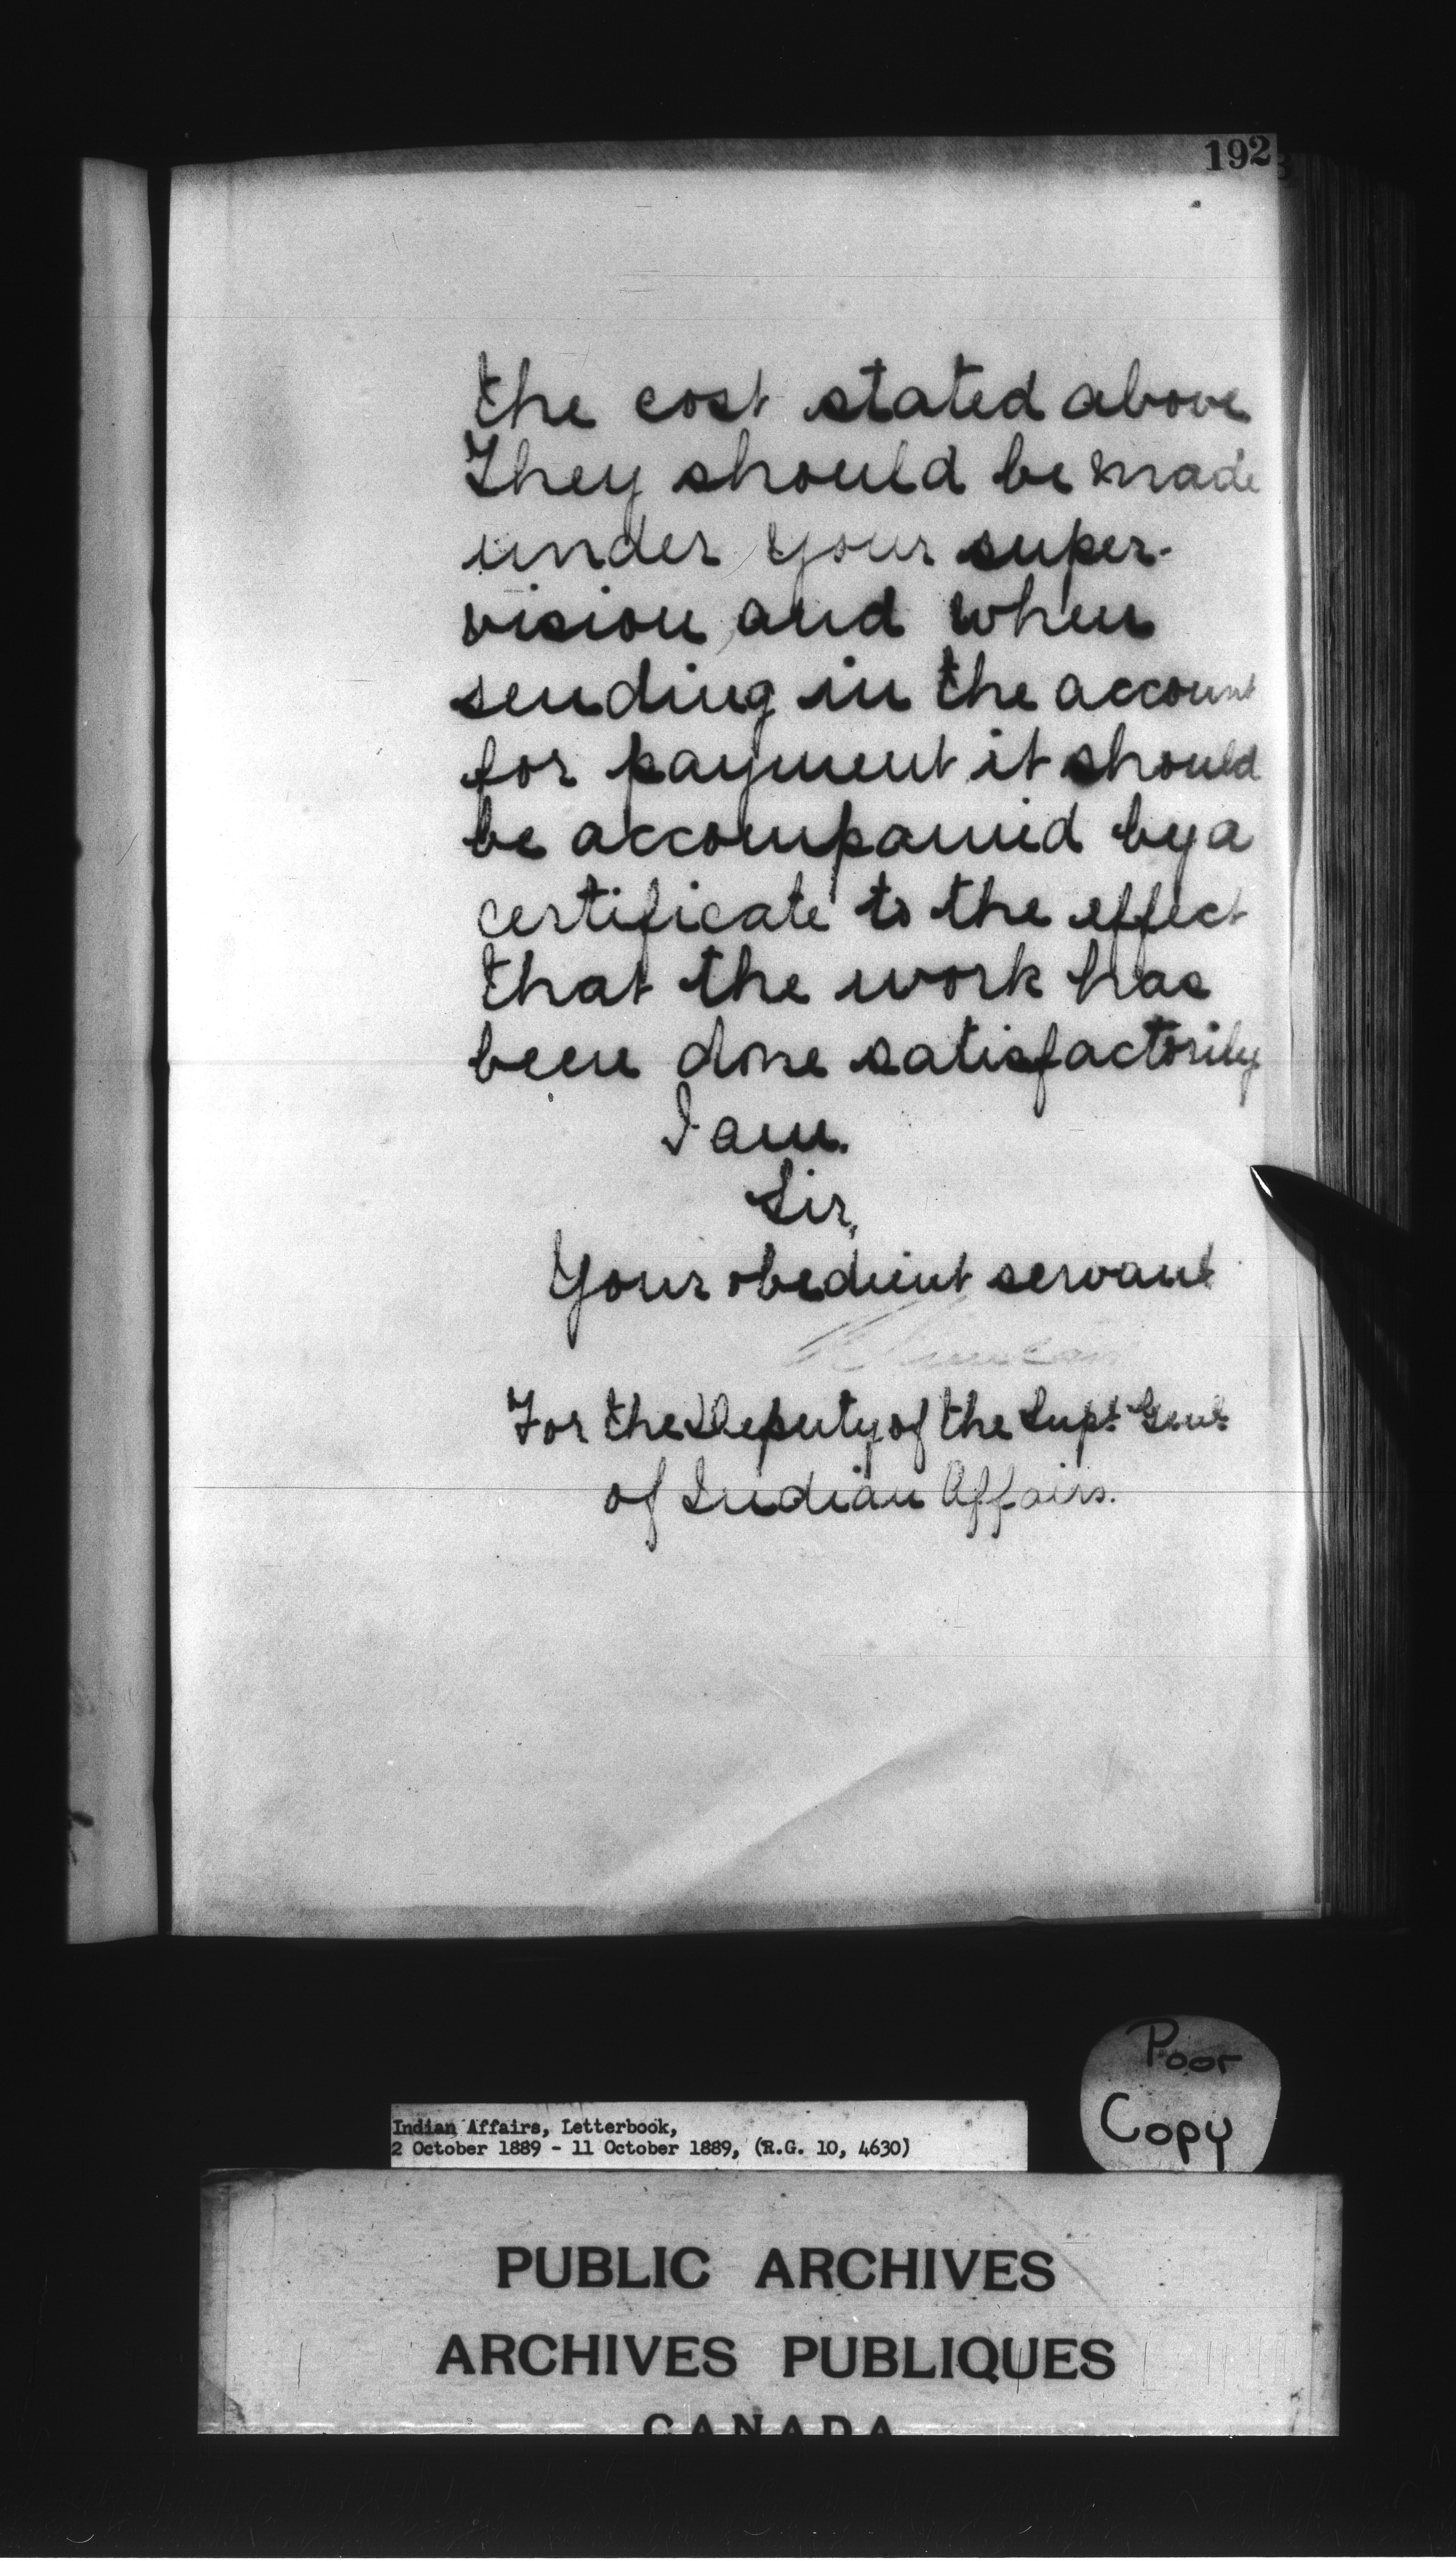 192
the cost stated above
They should be made
under your super-
vision and when
sending in the account
for payment it should
be accompanied by a
certificate to the effect
that the work has
been done satisfactorily
I am.
Sir,
Your obedient servant
For the Deputy of the Supt. Genl.
of Indian Affairs.
Poor
Copy
Indian Affairs, Letterbook,
2 October 1889 - 11 October 1889, (R.G. 10, 4630)
PUBLIC ARCHIVES
ARCHIVES PUBLIQUES
CANADA